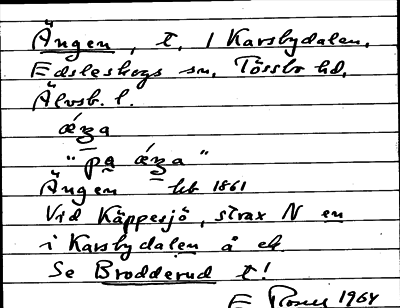 Ängen, t. i Karsbydalen,
Edsleskogs sn, Tössbo hd,
Älvsb. l.
ǽŋa
"pa ǽŋa"
Ängen hb 1861
Vid Käppesjö, strax N en
i Karsbydalen å ek
Se Brodderud t!
E 1964